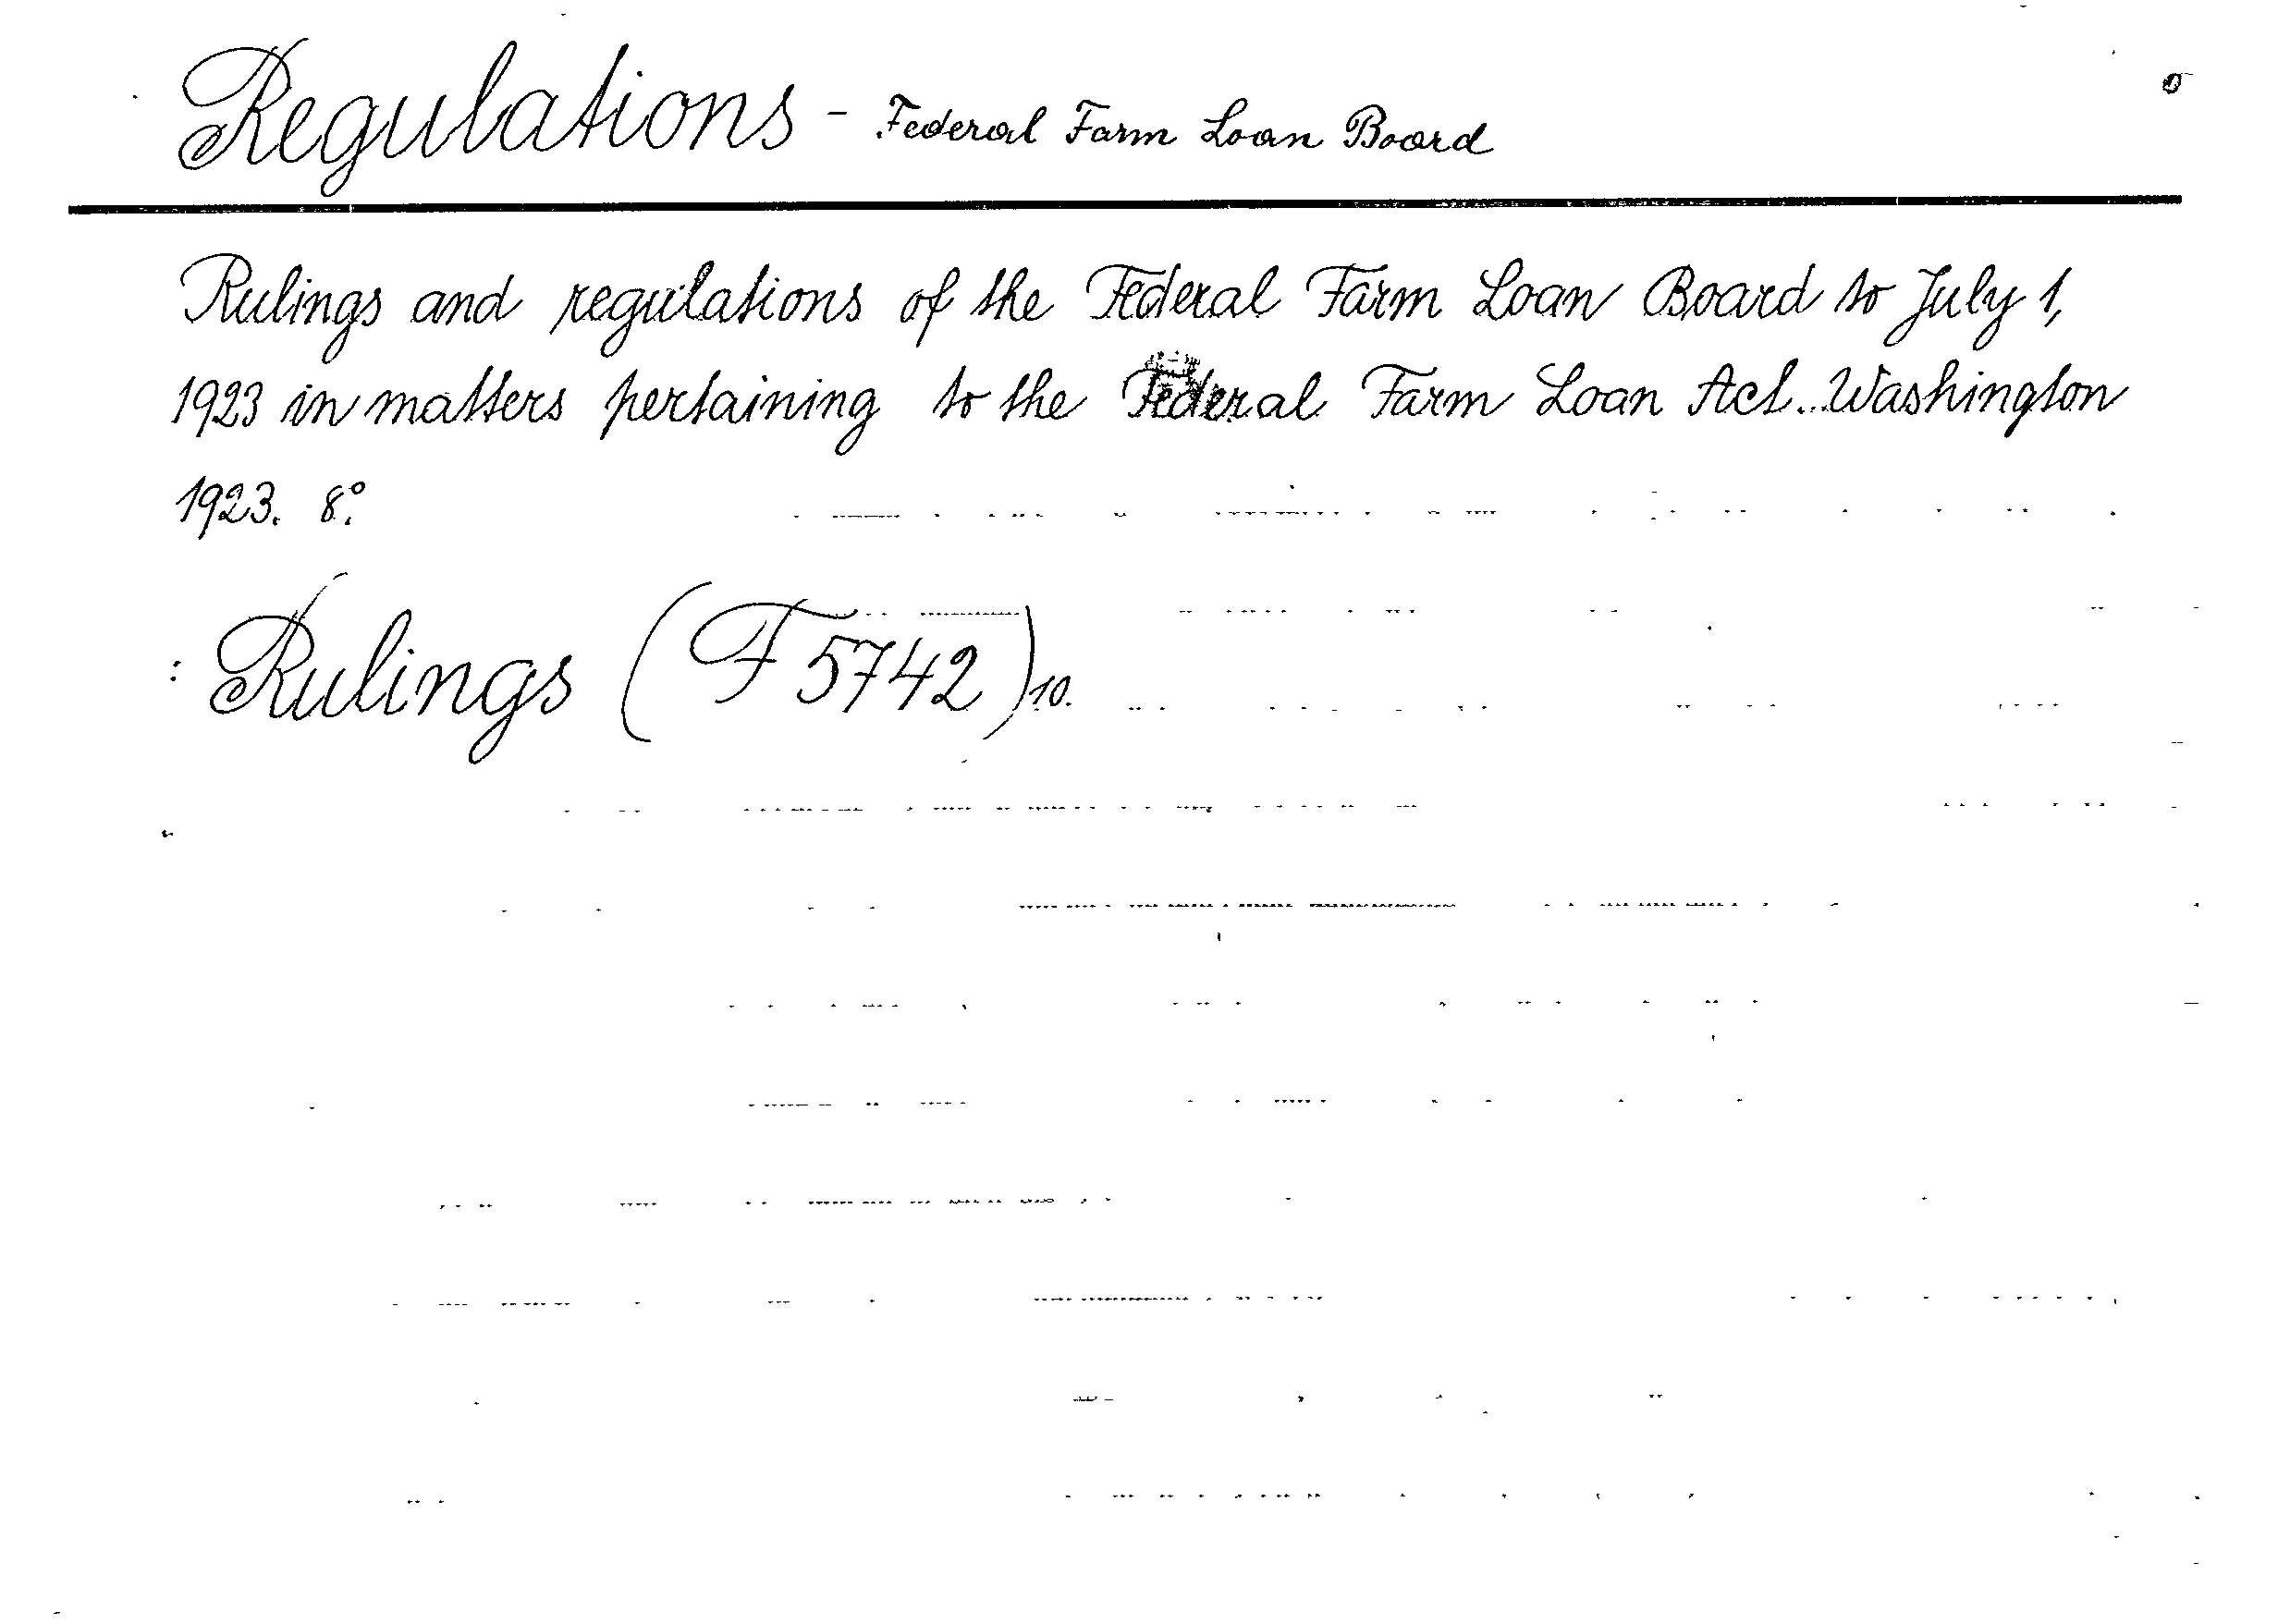 Regulations - Federal Farm Loan Board
Rulings and regulations of the Federal Farm Loan Board to July 1,
1923 in matters pertaining to the Federal Farm Loan Act... Washington
1923. 8°.
: Rulings (F 5742) 10.